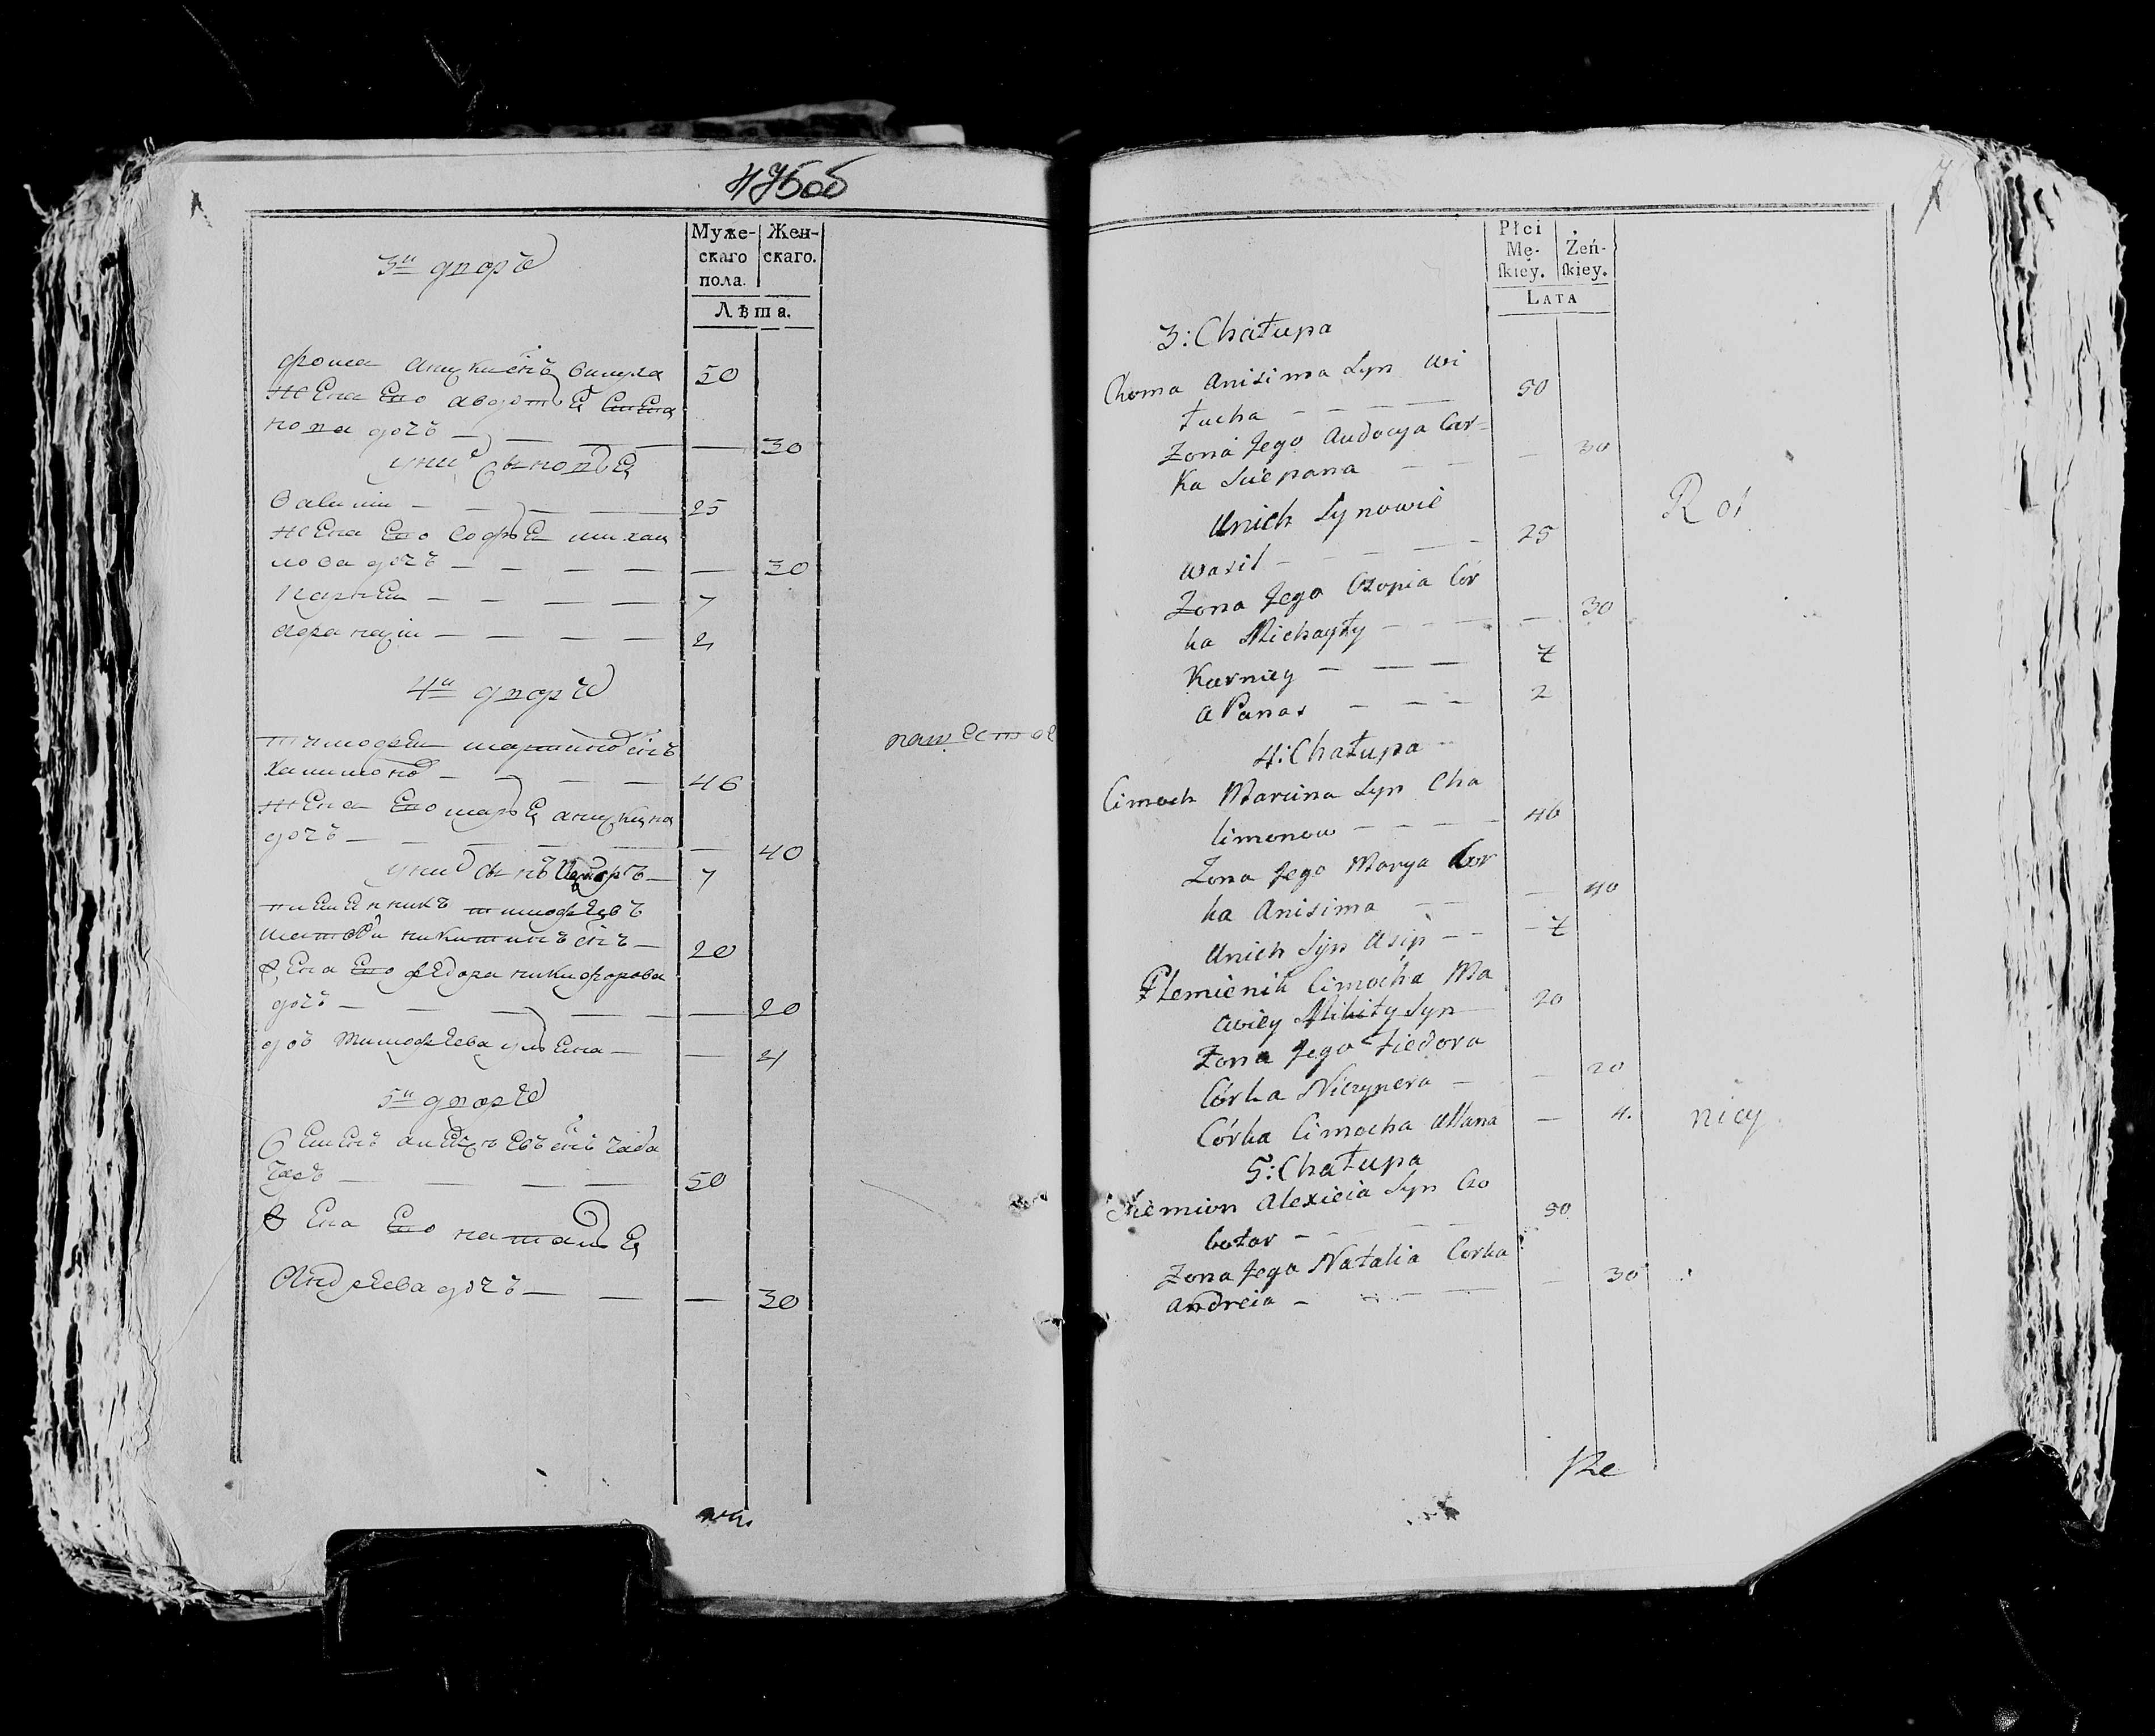 475об
Муже-
скаго
пола.
Жен-
скаго.
Лѣта.
3й дворъ
фома анискинъ Вилуха 50
жена Его авдотьѣ Степа
нова дочъ — — — — 30
унихъ сыновьѣ
Василии — — — 25
жена Его Софьѣ михаи
лова дочъ — — — — — 30
Карнѣи — — — — 7
Афанасіи — — — — 2
4й дворъ
Тимофѣи мартиновъ снъ
Халимоновъ — — — — 46
жена Его марьѣ анискина
дочъ — — — — — 40
унихъ сынъ — 7
племенникъ тимофѣевъ
матвѣй никитинъ снъ — 20
Жена Его федора никифорова
дочъ — — — — — — 20
дочъ тимофѣева ульяна — — 4
5й дворъ
Семенъ алексѣевъ снъ
— — — — 50
Жена Его натальѣ
Андрѣева дочъ — — — 30
Płci
Mę-
ſkiey.
Żeń-
ſkiey.
LATA
3: Chałupa
Choma Anisima Syn Wi
łucha — — — — — 50
Zona Jego Audocya Cor=
Ka Sciepana — — — 30
Unich Synowie
Wasil — — — — 25
Zona Jego Ozopia Cór
ka Michayły — — — — 30
Karniey — — — 7
aPanas — — — 2
Rot
4: Chałupa
Cimoch Marcina Syn Cha
limonow — — — — 46
Zona Jego Marya Cor
ka Anisima — — — 40
Unich Syn Asip — — — 7
Plemienik Cimocha Ma
cwiey Mikity Syn 20
Zona Jego Fiedora
Córka Niczypera — — 20
Córka Cimocha Ullana — 4.
nicy
5: Chałupa
Siemion Alexieia Syn Czo
botar — — — — 50
Zona Jego Natalia Corka
Andreia — — — — — 30